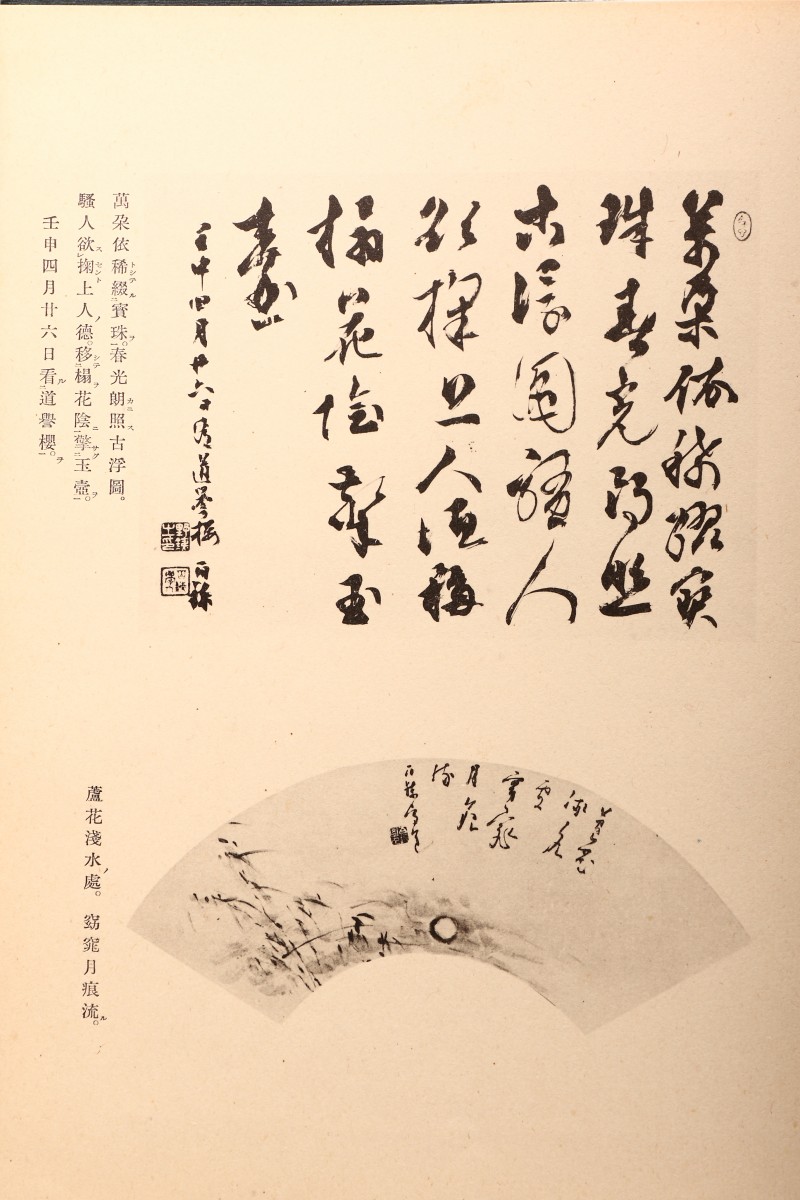 萬朶依稀綴寶
珠春光朗照
古浮圖騷人
欲掬上人德移
榻花陰擎玉
壺
壬申四月廿六日看道譽櫻 百穗
萬朶依稀綴寶珠。春光朗照古浮圖。
騷人欲掬上人德。移榻花陰擎玉壺。
壬申四月廿六日看道譽櫻。
蘆花
淺水
處
窈窕
月痕
流
百穗
蘆花淺水處。窈窕月痕流。